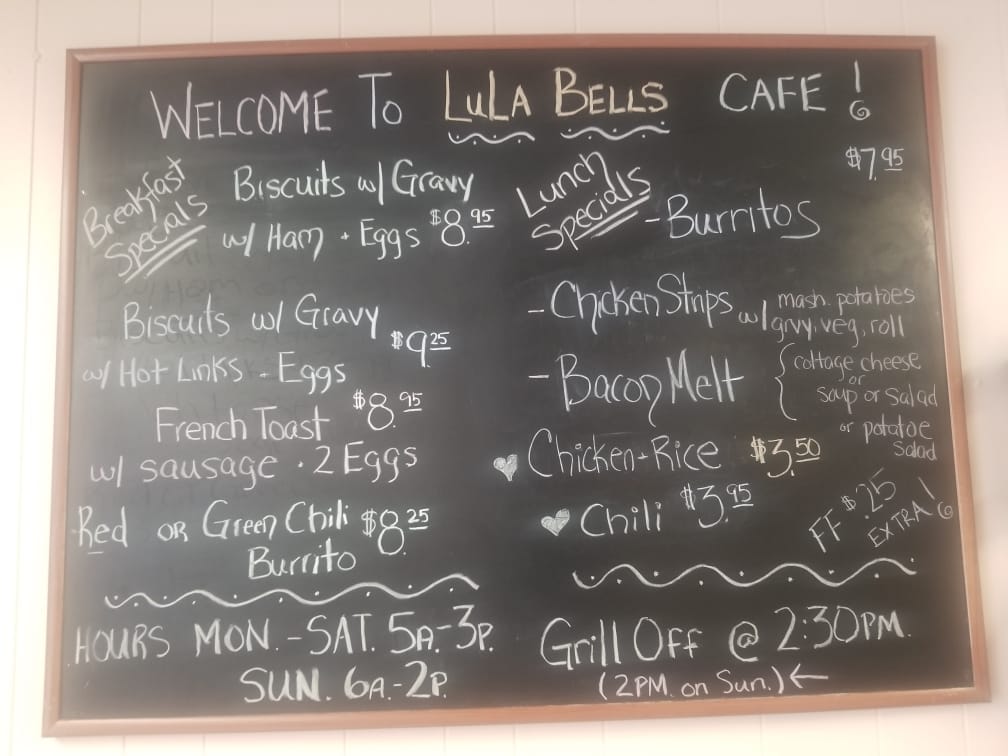 WELCOME TO LULA BELLS CAFE!
Breakfast
Specials
Biscuits w/ Gravy
w/ Ham + Eggs $8.95
Biscuits w/ Gravy
w/ Hot Links - Eggs $9.25
French Toast $8.95
w/ sausage · 2 Eggs
Red OR Green Chili $8.25
Burrito
Lunch
Specials
$7.95
- Burritos
- Chicken Strips w/ mash. potatoes
grvy, veg, roll
- Bacon Melt { cottage cheese
or
soup or salad
or potatoe
Salad
♥ Chicken + Rice $3.50
♥ Chili $3.95
FF $.25
EXTRA!
HOURS MON. - SAT. 5A.-3P.
SUN. 6A.-2P.
Grill Off @ 2:30PM.
(2PM. on Sun.) ←